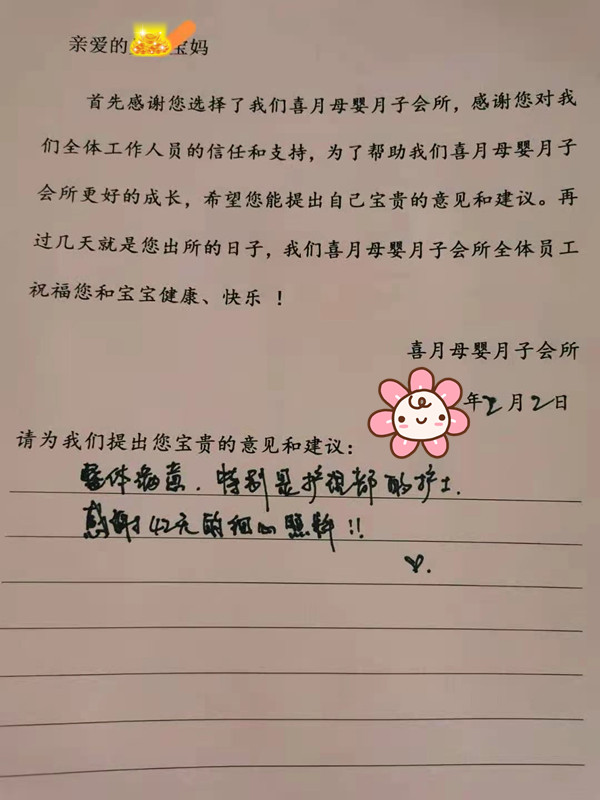 亲爱的 宝妈
首先感谢您选择了我们喜月母婴月子会所，感谢您对我
们全体工作人员的信任和支持，为了帮助我们喜月母婴月子
会所更好的成长，希望您能提出自己宝贵的意见和建议。再
过几天就是您出所的日子，我们喜月母婴月子会所全体员工
祝福您和宝宝健康、快乐 ！
喜月母婴月子会所
年2月2日
请为我们提出您宝贵的意见和建议：
整体满意．特别是护理部的护士．
感谢 的细心照料!!